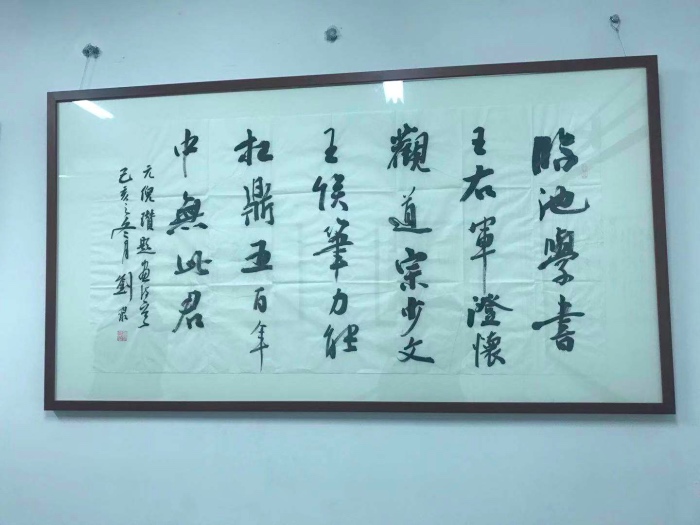 臨池學書
王右軍澄懷
觀道宗少文
王侯筆力能
扛鼎五百年
中無此君
元倪瓚題畫
己亥之冬月 劉